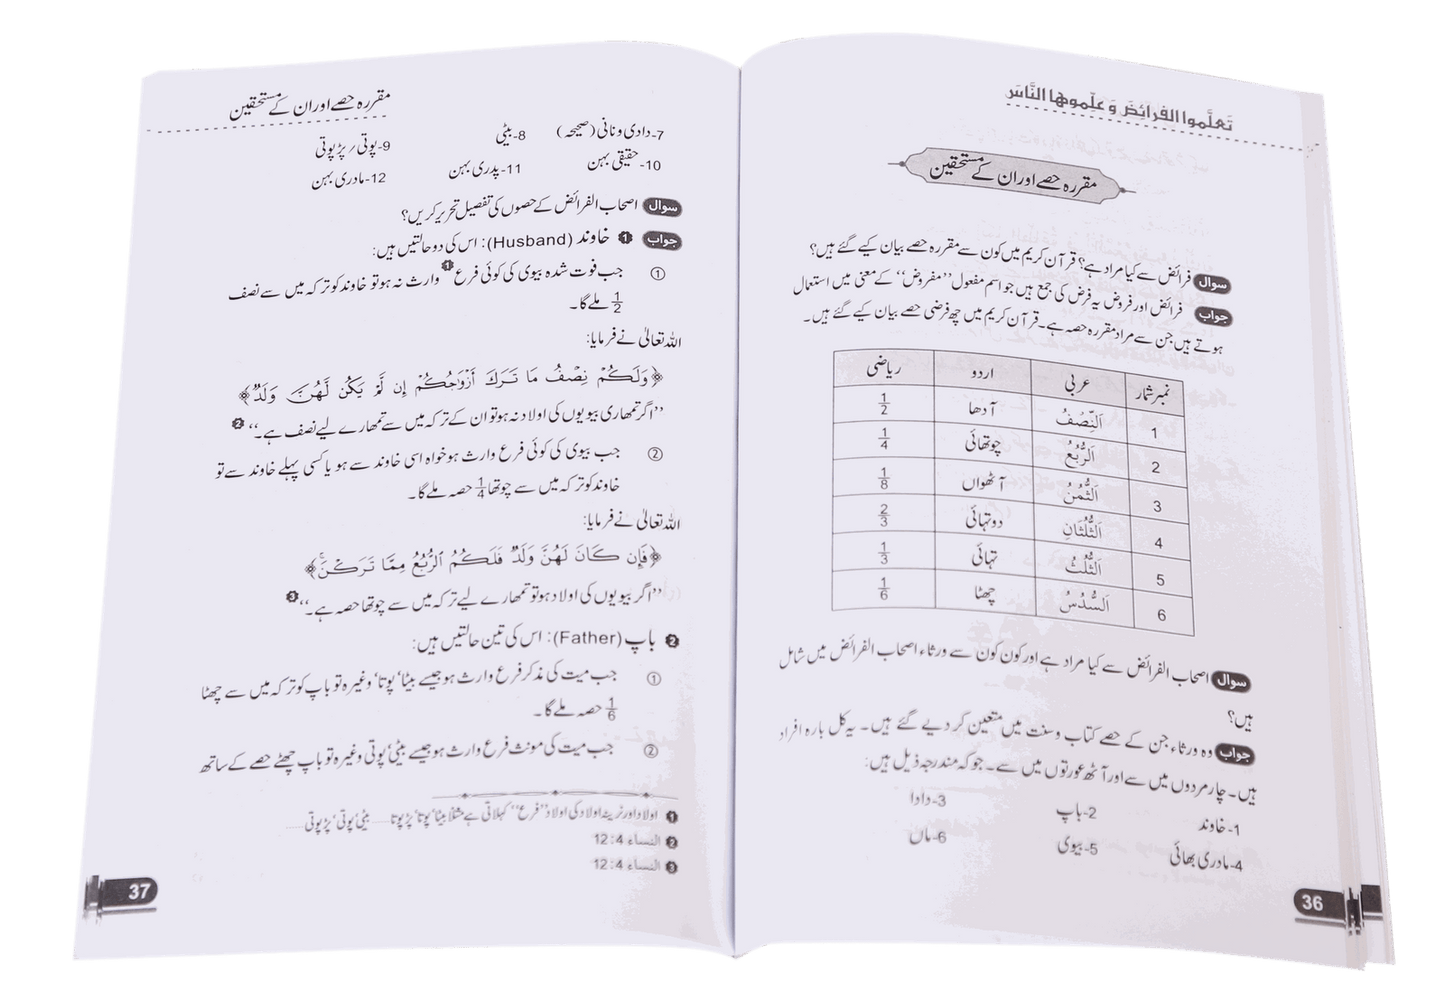 تَعلَّموا الفَرائِضَ وَ عَلِّموها النَّاسَ
مقررہ حصے اور ان کے مستحقین
سوال فرائض سے کیا مراد ہے؟ قرآن کریم میں کون سے مقررہ حصے بیان کیے گئے ہیں؟
جواب فرائض اور فروض یہ فرض کی جمع ہیں جو اسم مفعول ’’مفروض‘‘ کے معنی میں استعمال
ہوتے ہیں جن سے مراد مقررہ حصہ ہے۔ قرآن کریم میں چھ فرضی حصے بیان کیے گئے ہیں۔
نمبر شمار عربی اردو ریاضی
1 اَلنِّصْفُ آدھا 1/2
2 اَلرُّبُعُ چوتھائی 1/4
3 اَلثُّمُنُ آٹھواں 1/8
4 اَلثُّلُثَانِ دو تہائی 2/3
5 اَلثُّلُثُ تہائی 1/3
6 اَلسُّدُسُ چھٹا 1/6
سوال اصحاب الفرائض سے کیا مراد ہے اور کون کون سے ورثاء اصحاب الفرائض میں شامل
ہیں؟
جواب وہ ورثاء جن کے حصے کتاب وسنت میں متعین کر دیے گئے ہیں۔ یہ کل بارہ افراد
ہیں۔ چار مردوں میں سے اور آٹھ عورتوں میں سے۔ جو کہ مندرجہ ذیل ہیں:
1-خاوند 2-باپ 3-دادا
4-مادری بھائی 5-بیوی 6-ماں
36
مقررہ حصے اور ان کے مستحقین
7-دادی ونانی (صحیحہ) 8-بیٹی 9-پوتی/پڑپوتی
10-حقیقی بہن 11-پدری بہن 12-مادری بہن
سوال اصحاب الفرائض کے حصوں کی تفصیل تحریر کریں؟
جواب ❶ خاوند (Husband): اس کی دو حالتیں ہیں:
① جب فوت شدہ بیوی کی کوئی فرع❶ وارث نہ ہو تو خاوند کو ترکہ میں سے نصف
1/2 ملے گا۔
اللہ تعالیٰ نے فرمایا:
﴿وَلَكُمْ نِصْفُ مَا تَرَكَ أَزْوَٰجُكُمْ إِن لَّمْ يَكُن لَّهُنَّ وَلَدٌ﴾
’’اگر تمھاری بیویوں کی اولاد نہ ہو تو ان کے ترکہ میں سے تمھارے لیے نصف ہے۔‘‘❷
② جب بیوی کی کوئی فرع وارث ہو خواہ اسی خاوند سے ہو یا کسی پہلے خاوند سے تو
خاوند کو ترکہ میں سے چوتھا 1/4 حصہ ملے گا۔
اللہ تعالیٰ نے فرمایا:
﴿فَإِن كَانَ لَهُنَّ وَلَدٌ فَلَكُمُ ٱلرُّبُعُ مِمَّا تَرَكْنَۚ﴾
’’اگر بیویوں کی اولاد ہو تو تمھارے لیے ترکہ میں سے چوتھا حصہ ہے۔‘‘❸
❷ باپ (Father): اس کی تین حالتیں ہیں:
① جب میت کی مذکر فرع وارث ہو جیسے بیٹا‘ پوتا‘ وغیرہ تو باپ کو ترکہ میں سے چھٹا
1/6 حصہ ملے گا۔
② جب میت کی مونث فرع وارث ہو جیسے بیٹی‘ پوتی وغیرہ تو باپ چھٹے حصے کے ساتھ
❶ اولاد اور نرینہ اولاد کی اولاد ’’فرع‘‘ کہلاتی ہے مثلاً بیٹا‘ پوتا‘ پڑپوتا...... بیٹی‘ پوتی‘ پڑپوتی......
❷ النساء 4: 12
❸ النساء 4: 12
37